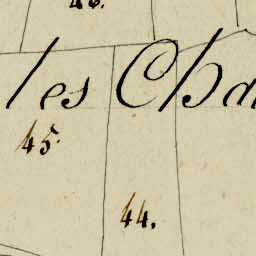 les Cha
45.
44.